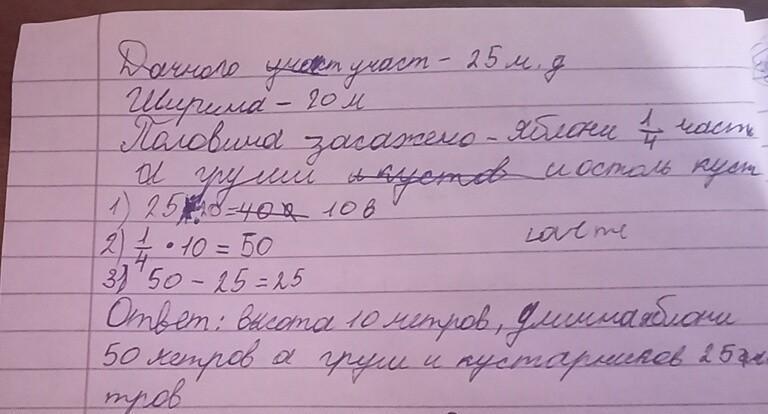 Дачного участ - 25 м. д
Ширина - 20 м
Половина засажено - яблони 1/4 часть
а груши и осталь куст
1) 25 = 10 в
2) 1/4 • 10 = 50
3) 50 - 25 = 25
Ответ: высота 10 метров, длинна яблони
50 метров а груш и кустарников 25 ме
тров